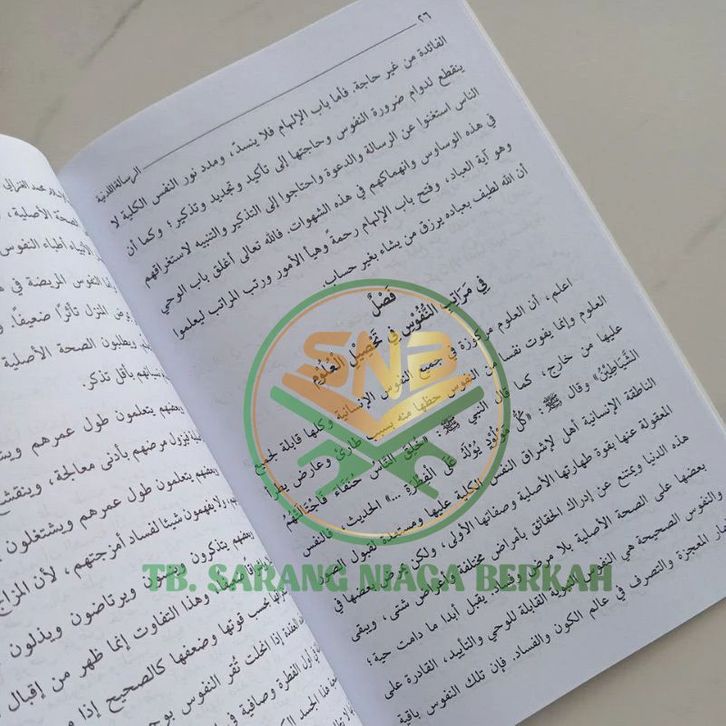 ٢٦
الرسالة اللدنية
الفائدة من غير حاجة. فأما باب الإلهام فلا ينسدّ، ومدد نور النفس الكلية لا
ينقطع لدوام ضرورة النفوس وحاجتها إلى تأكيد وتجديد وتذكير؛ وكما أن
الناس استغنوا عن الرسالة والدعوة واحتاجوا إلى التذكير والتنبيه لاستغراقهم
في هذه الوساوس وانهماكهم في هذه الشهوات، فالله تعالى أغلق باب الوحي
وهو آية العباد، وفتح باب الإلهام رحمةً وهيأ الأمور ورتب المراتب ليعلموا
أن الله لطيف بعباده يرزق من يشاء بغير حساب.
فَصْلٌ
في مَرَاتِبِ النُّفُوْسِ فِي تَحْصِيْلِ الْعُلُوْمِ
اعلم، أن العلوم مركوزة في جميع النفوس الإنسانية وكلها قابلة لجميع
العلوم وإنما يفوت نفسا من النفوس حظها منه بسبب طارئ وعارض يطرأ
عليها من خارج، كما قال النبي ﷺ: «خُلِقَ النَّاسُ حُنَفَاءَ فَاجْتَالَتْهُمُ
الشَّيَاطِيْنُ» وقال ﷺ: «كُلُّ مَوْلُوْدٍ يُوْلَدُ عَلَى الْفِطْرَةِ ...» الحديث. فالنفس
الناطقة الإنسانية أهل لإشراق النفس الكلية عليها ومستعدة لقبول الصور
المعقولة عنها بقوة طهارتها الأصلية وصفائها الأولى، ولكن يمرض بعضها في
هذه الدنيا ويمتنع عن إدراك الحقائق بأمراض مختلفة وأعراض شتى، ويبقى
بعضها على الصحة الأصلية بلا مرض وفساد يقبل أبدا ما دامت حية؛
والنفوس الصحيحة هي النفوس النبوية القابلة للوحي والتأييد، القادرة على
المعجزة والتصرف في عالم الكون والفساد. فإن تلك النفوس باقية
SNB
TB. SARANG NIAGA BERKAH
الصحة الأصلية،
أطباء النفوس
النفوس المريضة في
المنزل تأثرًا ضعيفًا،
ويطلبون الصحة الأصلية
بأقل تذكر.
يتعلمون طول عمرهم
مرضهم بأدنى معالجة،
يتعلمون طول عمرهم ويشتغلون
ولا يفهمون شيئا لفساد أمزجتهم، لأن المزاج
يتذكرون ويرتاضون ويذلون
وهذا التفاوت إنما ظهر من إقبال
بحسب قوتها وضعفها كالصحيح إذا